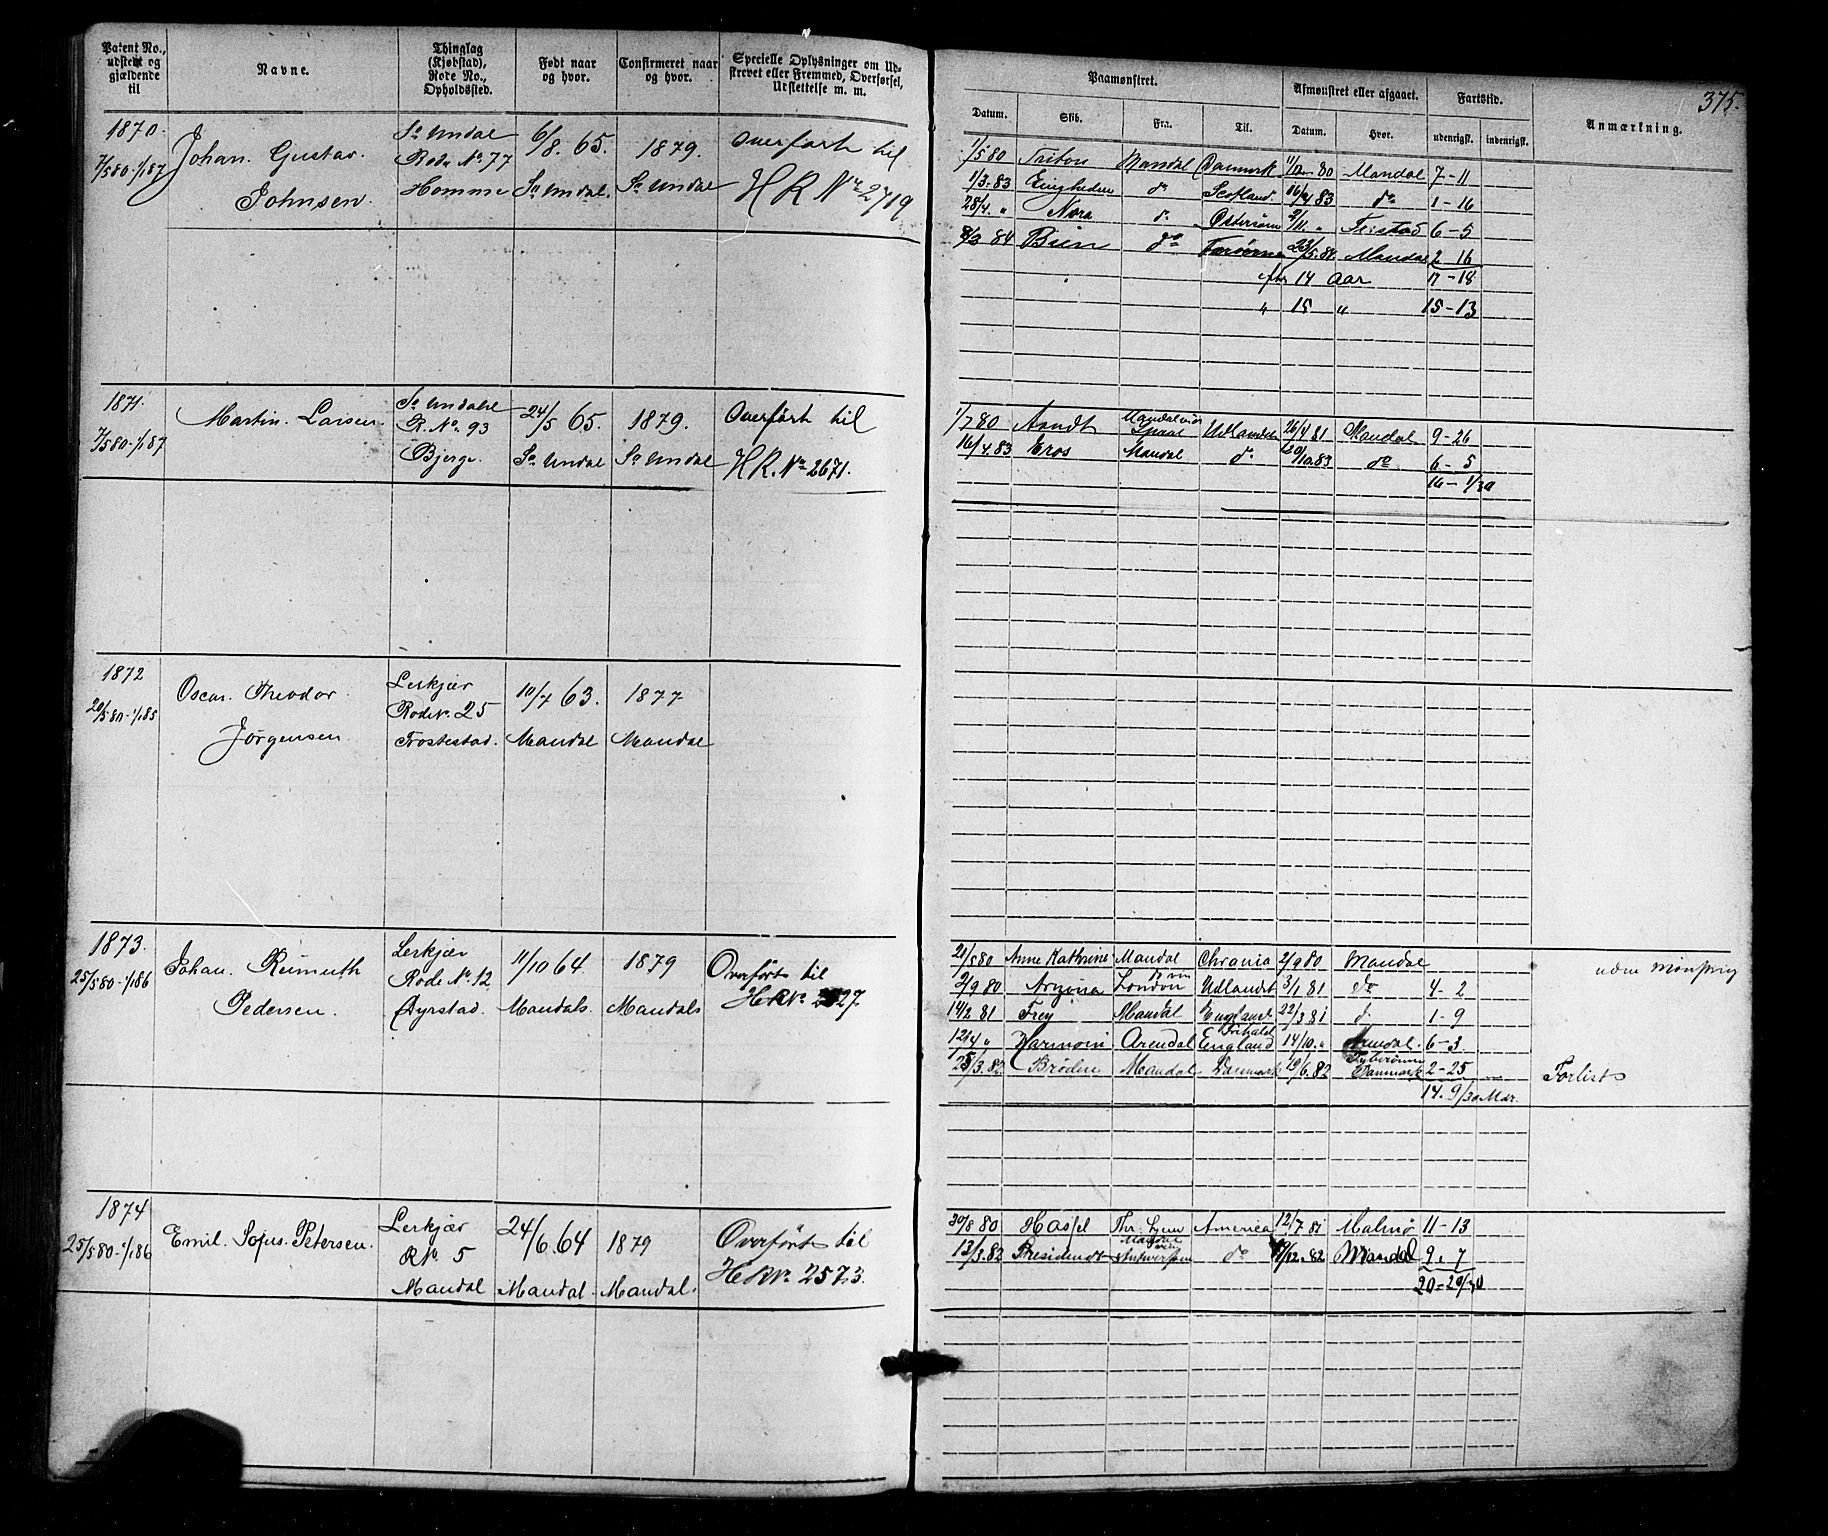 375.
Patent No., udstedt og gjældende til
Navne.
Thinglag (Kjøbstad), Rode No., Opholdssted.
Født naar og hvor.
Confirmeret naar og hvor.
Specielle Oplysninger om Udskrevet eller Fremmed, Overførsel, Udslettelse m. m.
Paamønstret.
Afmønstret eller afgaaet.
Fartstid.
Anmærkning.
Datum. Skib. Fra. Til. Datum. Hvor. udenrigsk. indenrigsk.
1870.
7/5 80-1/1 87
Johan. Gustav.
Johnsen.
So Undal
Rode No. 77
Homme
6/8. 65.
So Undal.
1879.
So Undal
Overført til
HR No 2719.
1/5 80 Triton Mandal Danmark 80 Mandal 7-11
1/3. 83 do Scotland. 16/4 83 do 1-16
28/4. " Nora do Østersøen " 6-5
84 do 23/5. 84 Mandal 2-16
før 14 Aar 17-18
" 15 " 15-13
1871.
7/5 80-1/1 87
Martin. Larsen.
So Undal
R. No. 93
Bjerge.
24/5 65.
So Undal
1879.
So Undal
Overført til
HR. No 2671.
1/7 80 Arndt Udlandet 26/4 81 Mandal 9-26
16/4. 83 Eros Mandal do 20/10. 83 do 6-5
16-1/30
1872
20/5 80-1/1 85
Oscar. Theodor.
Jørgensen.
Lerkjær
Rode No. 25
Frostestad.
10/7 63.
Mandal
1877
Mandal
1873.
25/5 80-1/1 86
Johan. Reimuth
Pedersen.
Lerkjær
Rode No. 12
Dyrstad.
11/10 64
Mandals.
1879
Mandals
Overført til
HRNo. 2527
21/5 80 Anne Kathrine Mandal Chrania 2/9 80 Mandal uden Mønstring
2/9 80 London Udlandet 3/1 81 do 4-2
14/2 81 Frey Mandal England 22/3 81 do 1-9
12/4 " Arendal England 14/10. " Arendal. 6-3.
25/3. 82 Brødre Mandal Danmark 19/6. 82 Danmark 2-25 Forlist
14-9/30 Mdr.
1874
25/5 80-1/1 86
Emil. Sofus. Petersen.
Lerkjær
RNo. 5
Mandal
24/6. 64
Mandal.
1879
Mandal.
Overført til
HRNo. 2573.
30/8 80 Hassel America 12/7 81 Malmø 11-13
13/3. 82 Presidendt Antwerpen do 82 Mandal 9-7
20-20/30